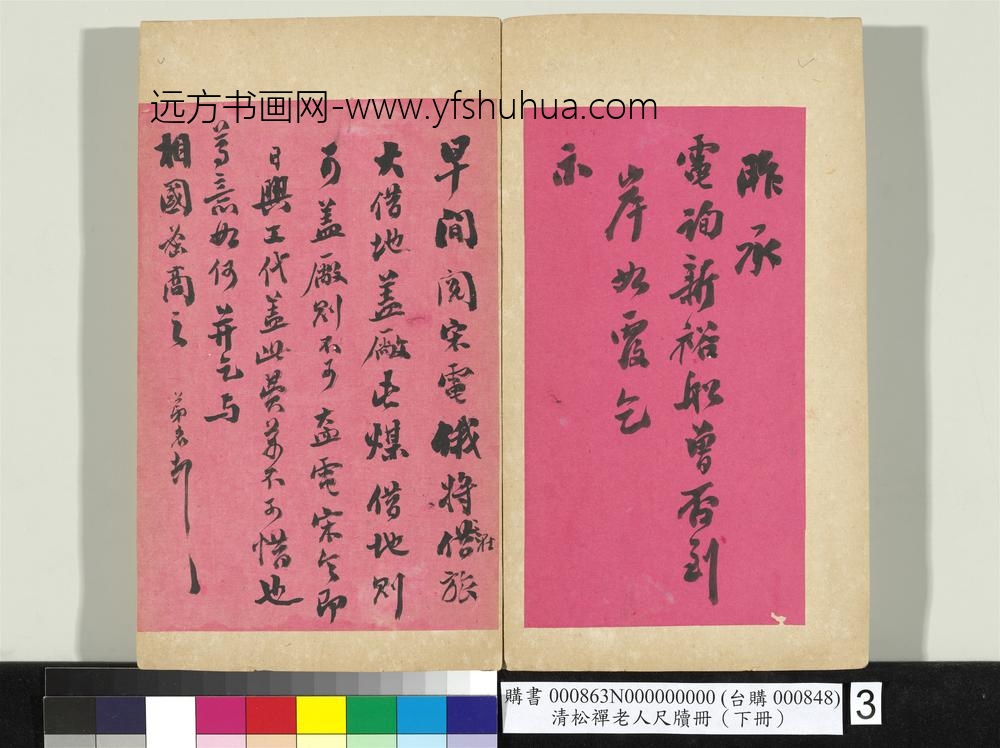 远方书画网-www.yfshuhua.com
昨承
電詢新裕船曾否到
岸如覆乞
示
早間閱宋電俄將借旅
大借地蓋廠屯煤借地則
可蓋廠則不可盍電宋令即
日興工代蓋此費萬不可惜也
尊意如何并乞与
相國密商之
購書 000863N000000000 (台購 000848)
清松禪老人尺牘冊（下冊）
3